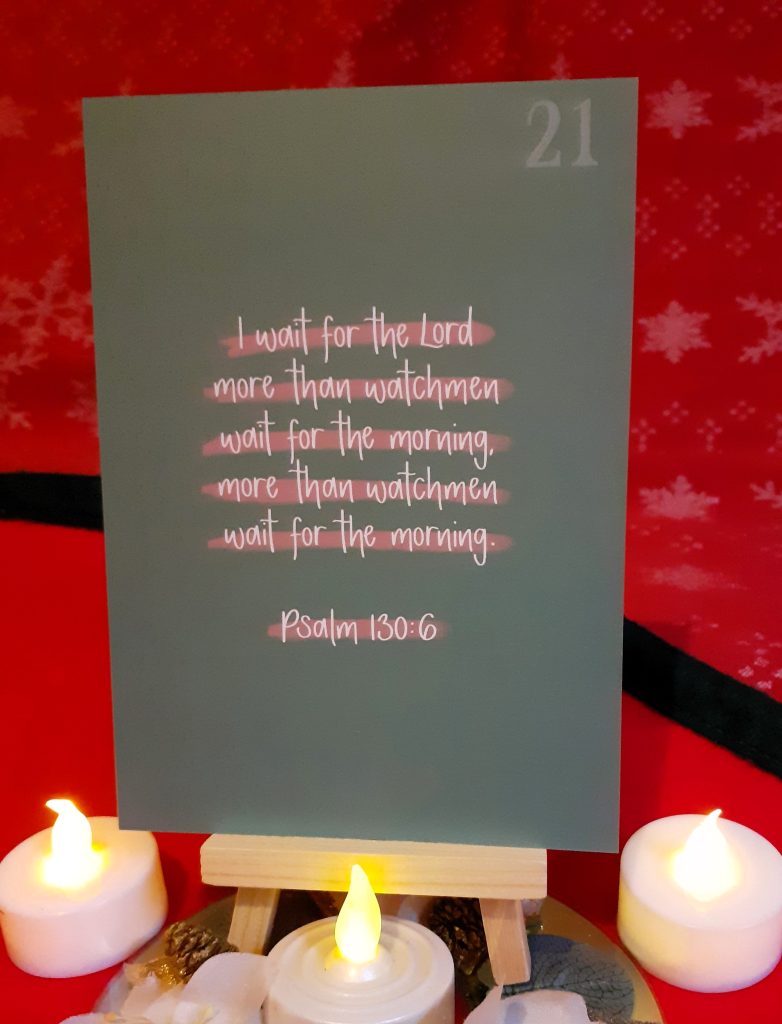 21
I wait for the Lord
more than watchmen
wait for the morning,
more than watchmen
wait for the morning.
Psalm 130:6